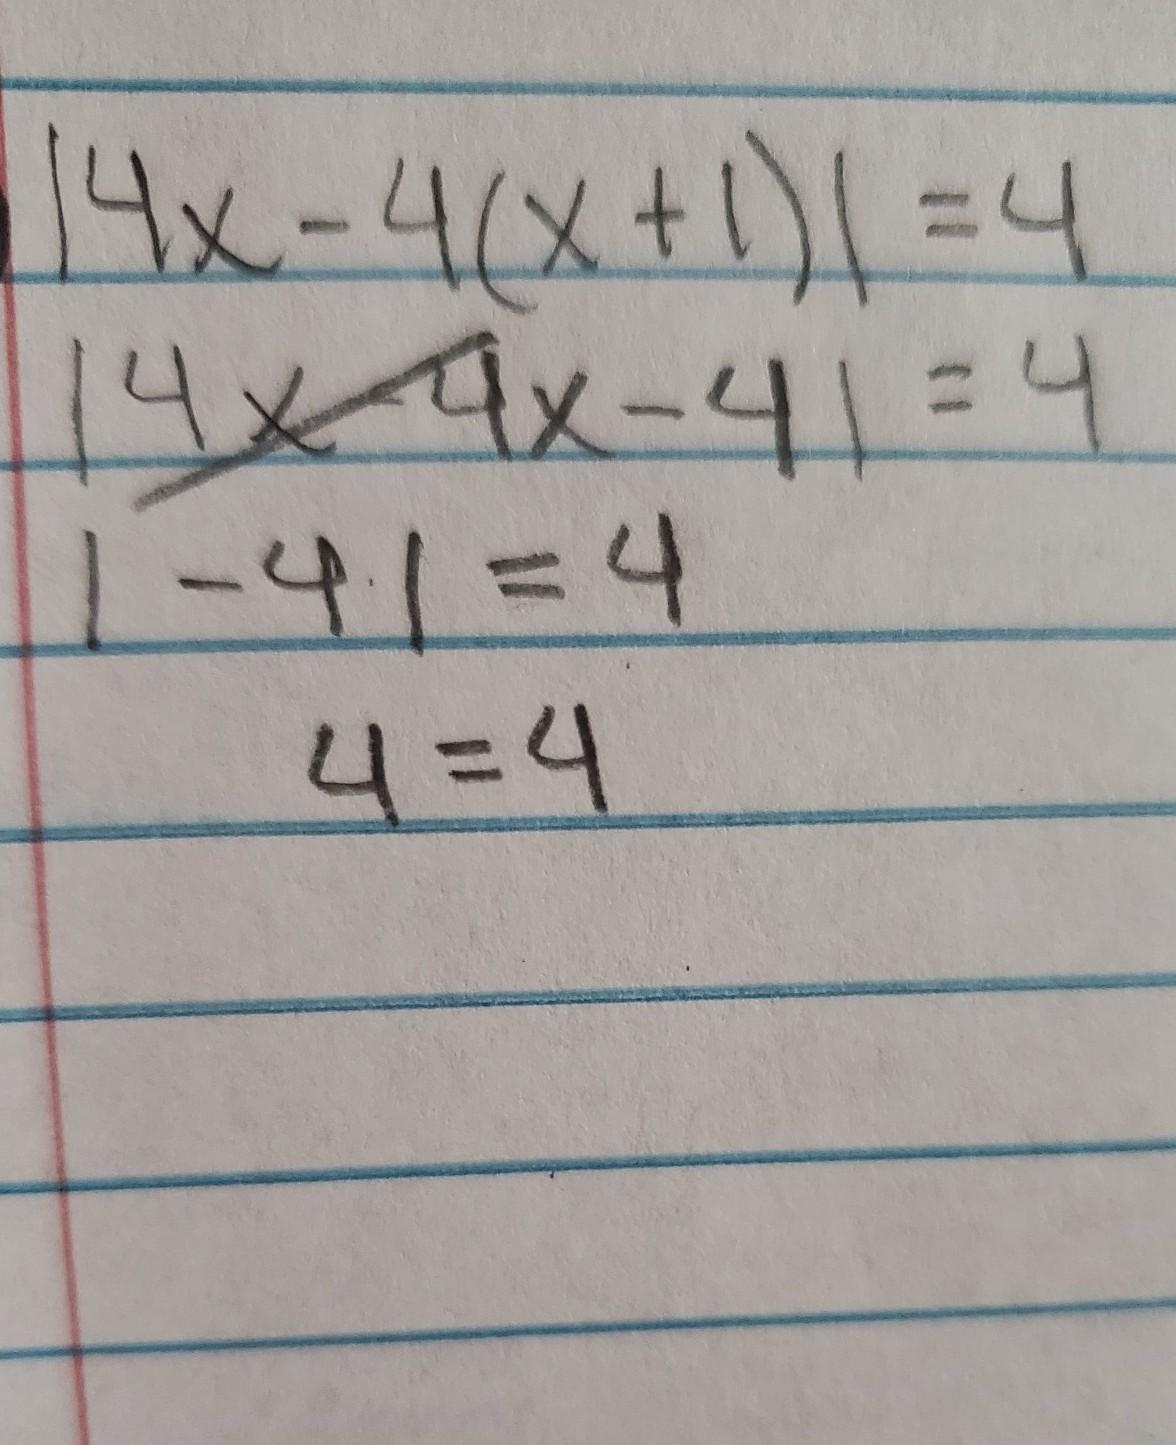 |4x - 4(x + 1)| = 4
|4x - 4x - 4| = 4
| - 4 | = 4
4 = 4